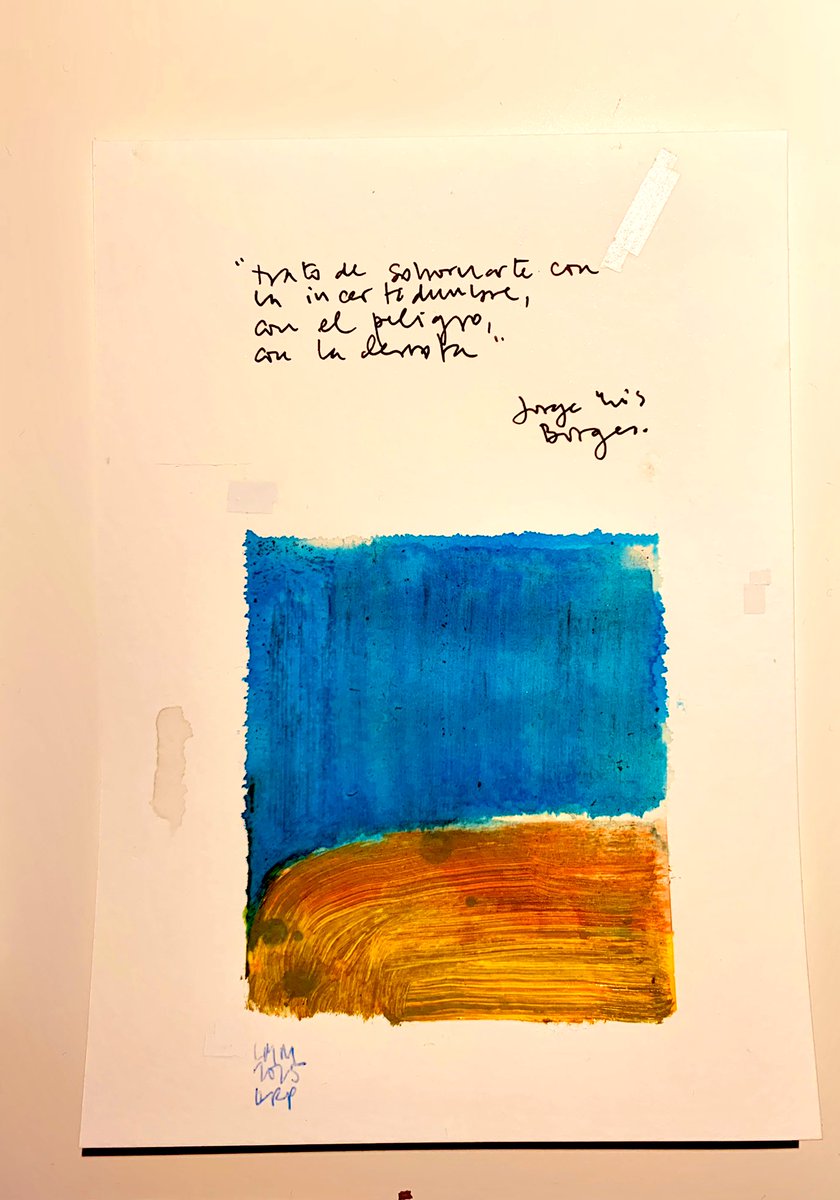 "trato de sobornarte con
la incertidumbre,
con el peligro,
con la derrota"
Jorge Luis
Borges.
LMM
2025